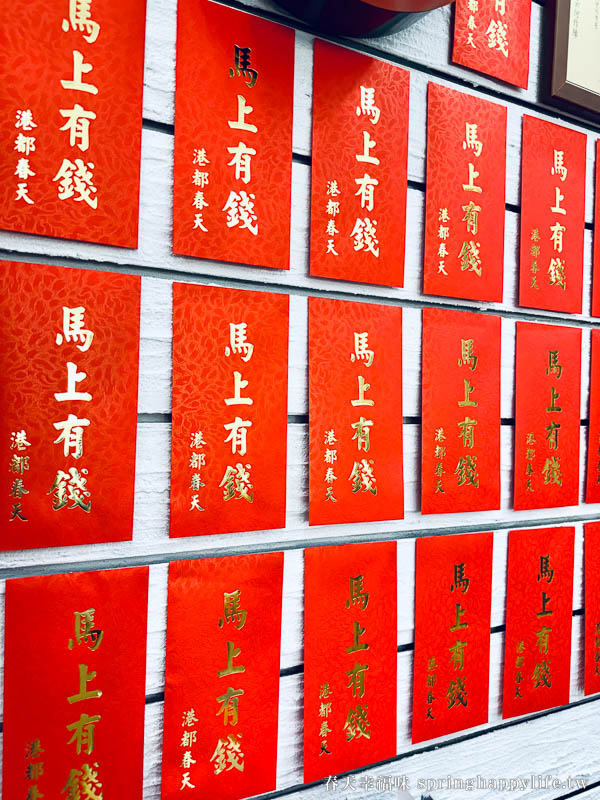 有錢
馬上有錢
港都春天
馬上有錢
港都春天
馬上有錢
港都春天
馬上有錢
港都春天
馬上有錢
港都春天
馬上有錢
港都春天
馬上有錢
港都春天
馬上有錢
港都春天
馬上有錢
港都春天
馬上有錢
港都春天
馬上有錢
港都
馬上有錢
港都春天
馬上有錢
港都春天
馬上有錢
港都春天
馬上有錢
港都春天
春天幸福味 springhappylife.tw